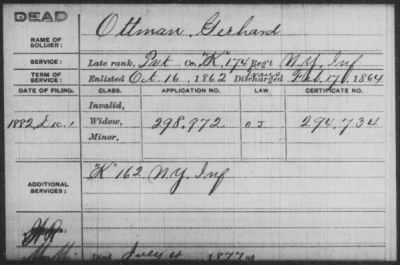 DEAD
NAME OF SOLDIER: Ottman, Gerhard
SERVICE: Late rank, Pvt Co. "K", 174 Reg't N.Y. Inf
TERM OF SERVICE: Enlisted Oct. 16, 1862 Discharged Feb. 17, 1864
DATE OF FILING. CLASS. APPLICATION NO. LAW. CERTIFICATE NO.
Invalid,
1882 Widow, 298,972 294,734
Minor,
ADDITIONAL SERVICES: "K" 162 N.Y. Inf
Died July 4, 1877